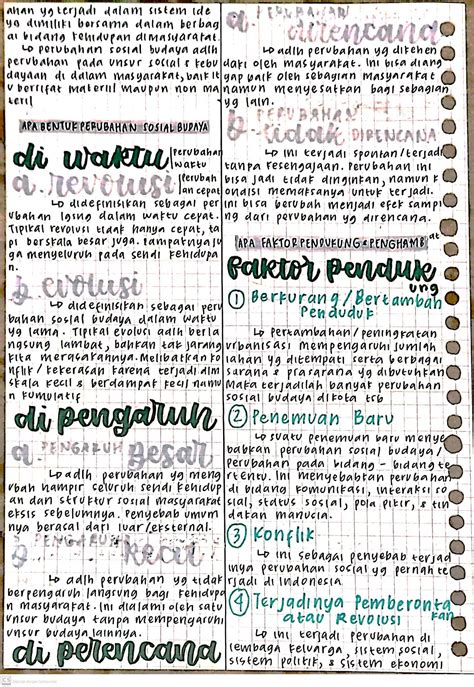 ahan yg terjadi dalam sistem ide
yg dimiliki bersama dalam berbag
ai bidang kehidupan dimasyarakat.
↳ perubahan sosial budaya adlh
perubahan pada unsur sosial & kebu
dayaan di dalam masyarakat, baik it
u bersifat materiil maupun non ma
teriil
APA BENTUK PERUBAHAN SOSIAL BUDAYA
di waktu perubahan
waktu
a. revolusi perubah
an cepat
↳ didefinisikan sebagai per
ubahan lgsng dalam waktu cepat.
Tipikal revolusi tidak hanya cepat, ta
pi berskala besar juga. Dampaknya ju
ga menyeluruh pada sendi kehidupa
n.
b evolusi
↳ didefinisikan sebagai per
bahan sosial budaya dalam waktu
yg lama. Tipikal evolusi adlh berla
ngsung lambat, bahkan tak jarang
kita merasakannya. Melibatkan ko
nflik / kekerasan karena terjadi dlm
skala kecil & berdampak kecil namu
n kumulatif
di pengaruh
a. PENGARUH Besar
↳ adlh perubahan yg meng
ubah hampir seluruh sendi kehidup
an dan struktur sosial masyarakat
eksis sebelumnya. Penyebab umum
nya berasal dari luar/eksternal.
PENGARUH Kecil
↳ adlh perubahan yg tidak
berpengaruh langsung bagi kehidupa
n masyarakat. Ini dialami oleh satu
unsur budaya tanpa mempengaruhi
unsur budaya lainnya.
di perencana
a. PERUBAHAN
direncana
↳ adlh perubahan yg dikehen
daki oleh masyarakat. Ini bisa diang
gap baik oleh sebagian masyarakat
namun menyesatkan bagi sebagian
yg lain.
b PERUBAHAN
tidak DIRENCANA
↳ Ini terjadi spontan/terjadi
tanpa kesengajaan. Perubahan ini
bisa jadi tidak diinginkan, namun k
ondisi memaksanya untuk terjadi.
Ini bisa berubah menjadi efek sampi
ng dari perubahan yg direncana.
APA FAKTOR PENDUKUNG & PENGHAMB at
Faktor penduk
ung
① Berkurang / Bertambah
Penduduk
↳ pertambahan / peningkatan
urbanisasi mempengaruhi jumlah
lahan yg ditempati serta berbagai
sarana & prasarana yg dibutuhkan
Maka terjadilah banyak perubahan
sosial budaya di kota tsb
② Penemuan Baru
↳ suatu penemuan baru menye
babkan perubahan sosial budaya /
perubahan pada bidang - bidang te
rtentu. Ini menyebabkan perubahan
di bidang komunikasi, interaksi so
sial, status sosial, pola pikir, & tin
dakan manusia.
③ Konflik
↳ ini sebagai penyebab terjad
inya perubahan sosial yg pernah te
rjadi di Indonesia.
④ Terjadinya Pemberonta
kan
atau Revolusi
↳ ini terjadi perubahan di
lembaga keluarga, sistem sosial,
sistem politik, & sistem ekonomi